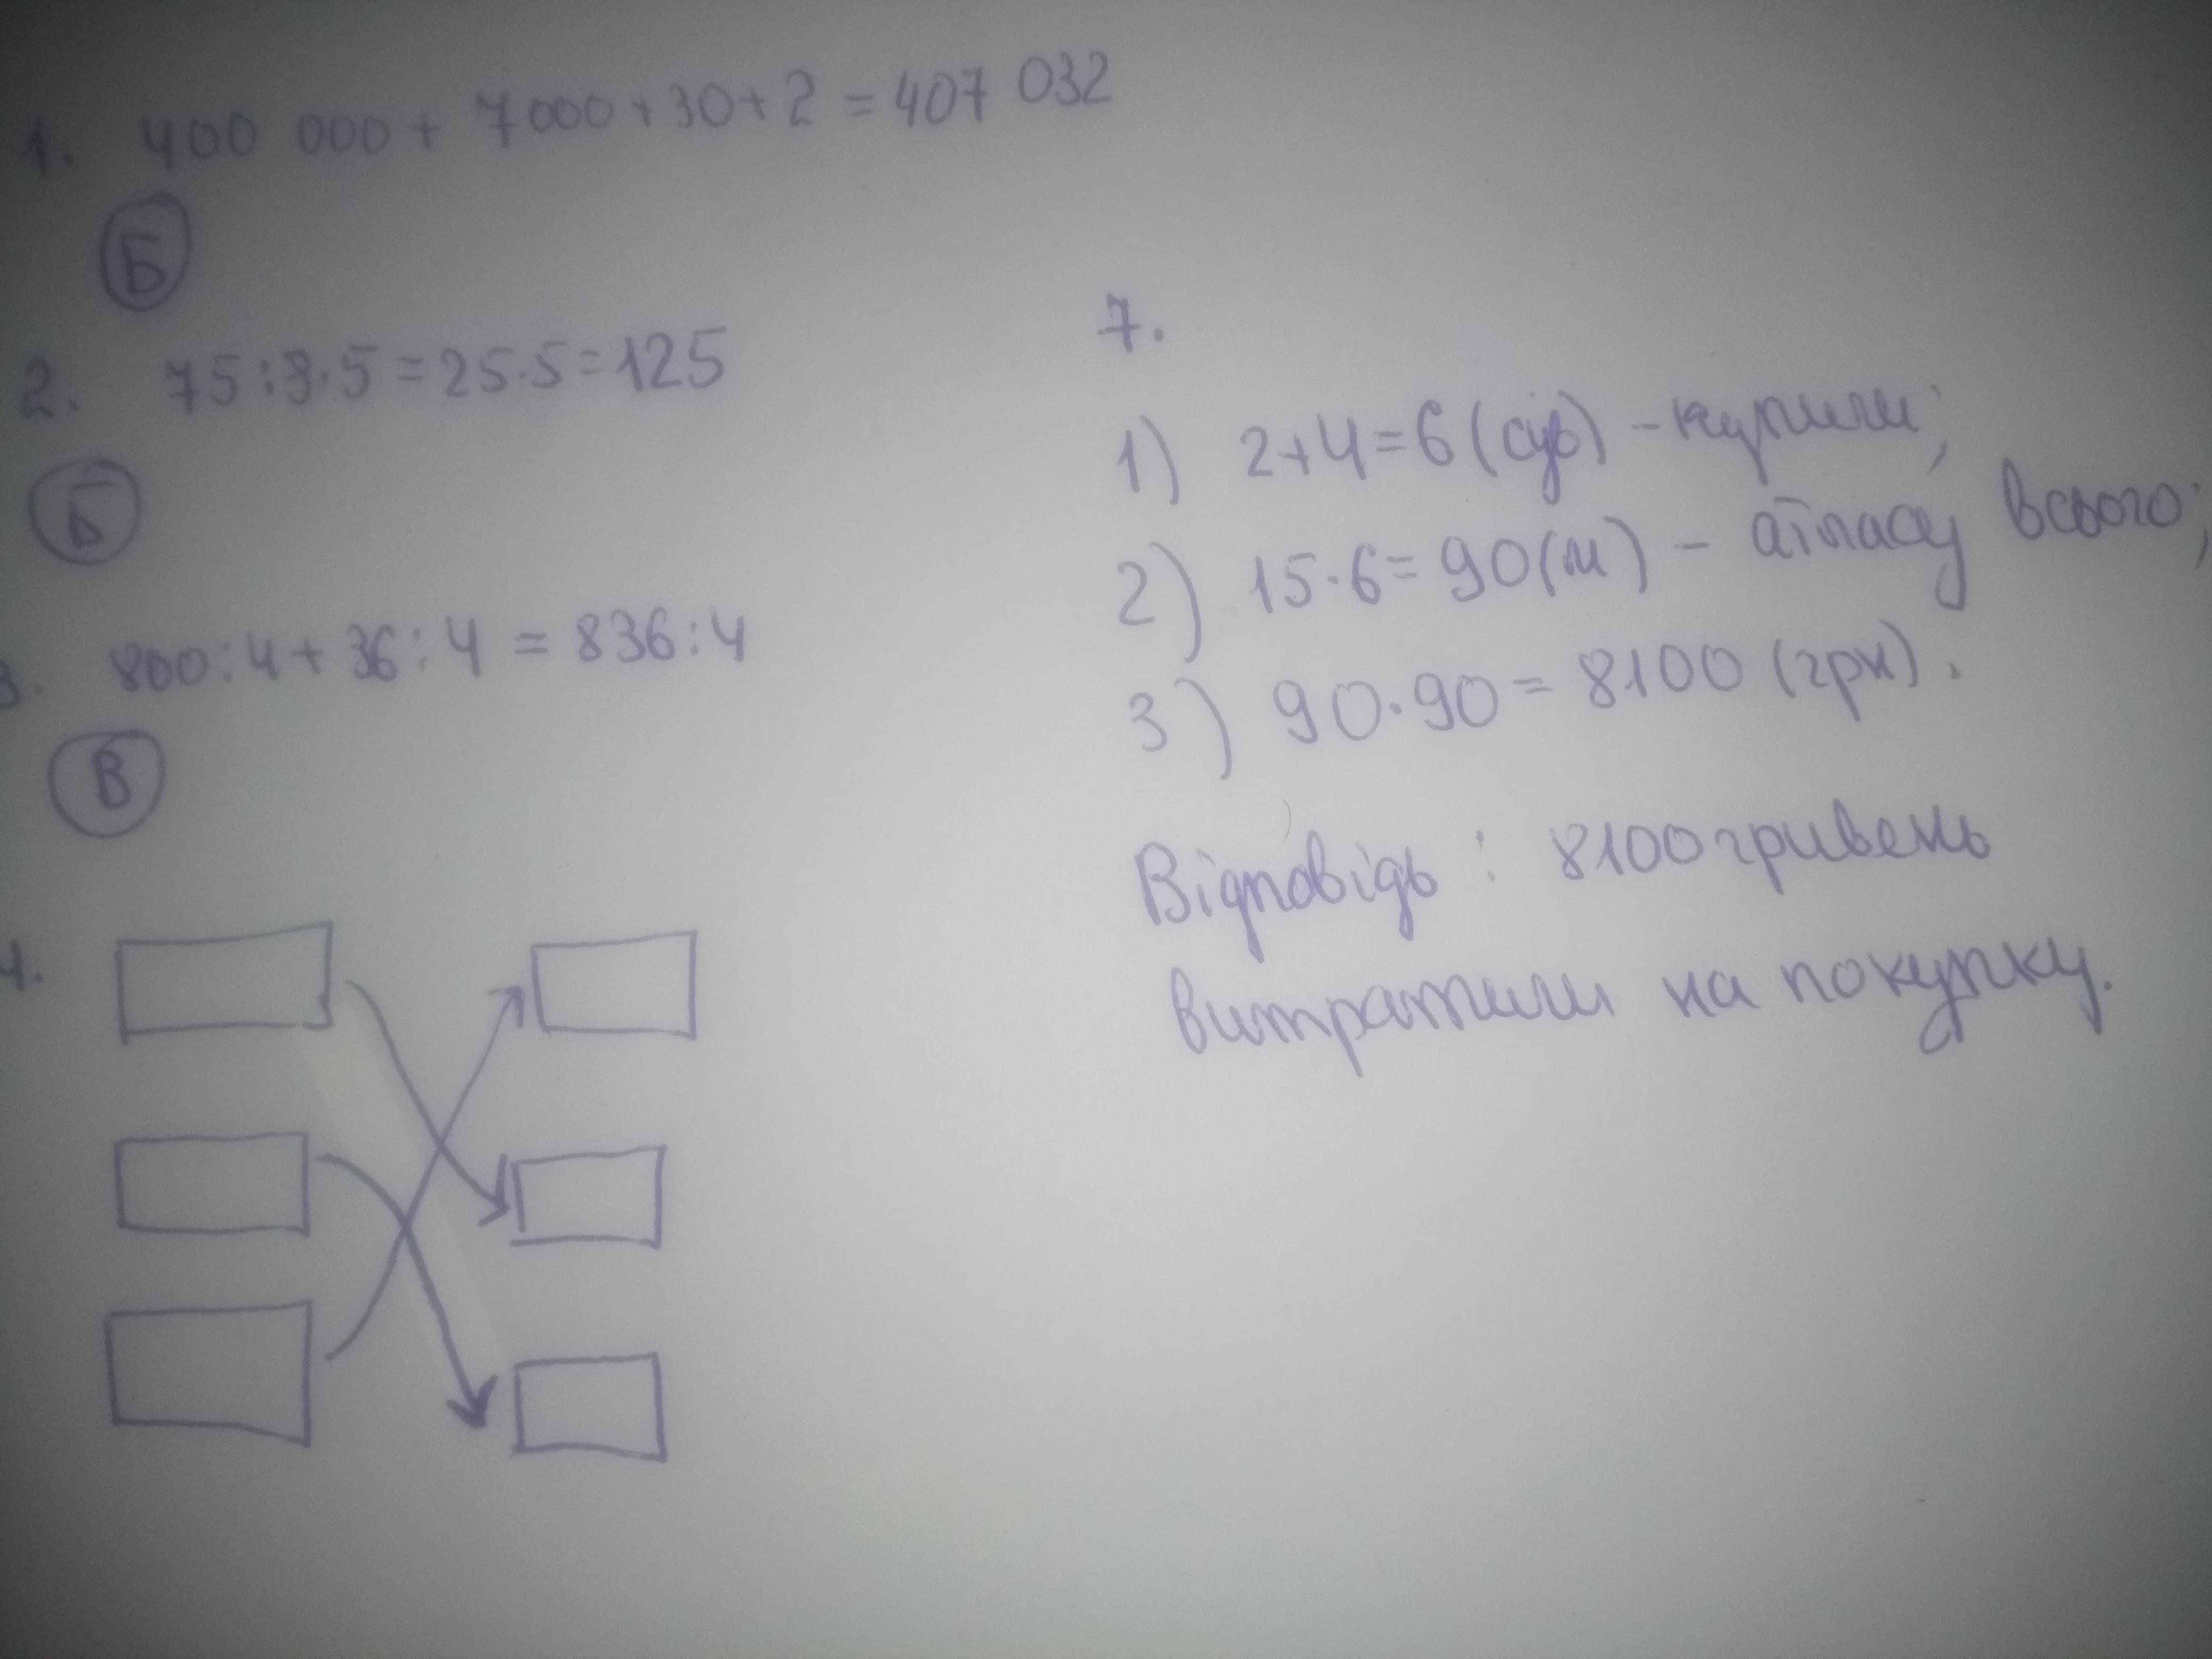 1. 400 000 + 7000 + 30 + 2 = 407 032
Б
2. 75 : 3 · 5 = 25 · 5 = 125
Б
3. 800 : 4 + 36 : 4 = 836 : 4
В
4.
7.
1) 2 + 4 = 6 (сув) - купили;
2) 15 · 6 = 90 (м) - атласу всього;
3) 90 · 90 = 8100 (грн).
Відповідь : 8100 гривень
витратили на покупку.